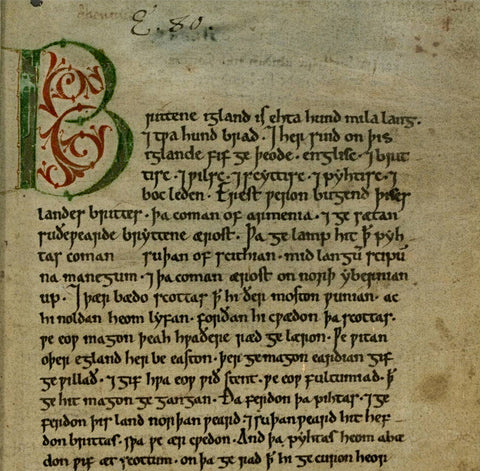 E. 80.
Brittene igland is ehta hund mila lang.
⁊ tƿa hund brad. ⁊ her sind on þis
iglande fif ge þeode. englisc. ⁊ brit
tisc. ⁊ ƿilsc. ⁊ scyttisc. ⁊ pyhtisc. ⁊
boc leden. Erest ƿeron bugend þises
landes brittes. þa coman of armenia. ⁊ ge sætan
suðeƿearde bryttene ærost. Þa ge lamp hit ꝥ pyh
tas coman suþan of scithian. mid langū scipū
na manegum. ⁊ þa coman ærost on norþ ybernian
up. ⁊ þær bædo scottas ꝥ hi ðer moston ƿunian. ac
hi noldan heom lyfan. forðan hi cƿædon þa scottas.
ƿe eoƿ magon þeah hƿaðere ræd ge læron. Ƿe ƿitan
oþer egland her be easton. þer ge magon eardian gif
ge ƿillað. ⁊ gif hƿa eoƿ ƿið stent. ƿe eoƿ fultumiað. ꝥ
ge hit magon ge gangan. Ða ferdon þa pihtas. ⁊ ge
ferdon þis land norþan ƿeard. ⁊ suþan ƿeard hit hef
don brittas. sƿa ƿe ær cƿedon. And þa pyhtas heom abæ
don ƿif æt scottum. on þa ge rad ꝥ hi ge curon heor